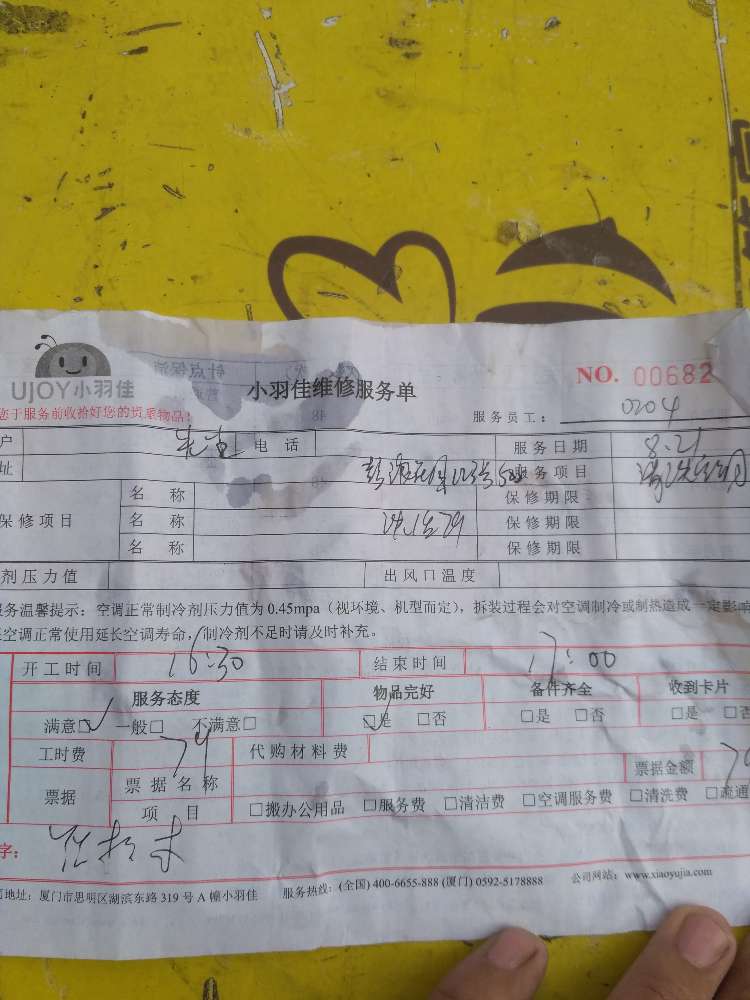 UJOY小羽佳
小羽佳维修服务单
NO. 00682
您于服务前收拾好您的贵重物品！
服务员工： 0204
户 先生 电话 服务日期 8.21
址 服务项目
名称 保修期限
保修项目 名称 保修期限
名称 保修期限
剂压力值 出风口温度
服务温馨提示：空调正常制冷剂压力值为 0.45mpa（视环境、机型而定），拆装过程会对空调制冷或制热造成一定影响
空调正常使用延长空调寿命，制冷剂不足时请及时补充。
开工时间 16:30 结束时间 17:00
服务态度 物品完好 备件齐全 收到卡片
满意□✓ 一般□ 不满意□ □✓是 □否 □是 □否 □是 □否
工时费 79 代购材料费
票据 票据名称 票据金额
项目 □搬办公用品 □服务费 □清洁费 □空调服务费 □清洗费 □疏通
字：
地址：厦门市思明区湖滨东路 319 号 A 幢小羽佳 服务热线：(全国) 400-6655-888 (厦门) 0592-5178888 公司网站：www.xiaoyujia.com